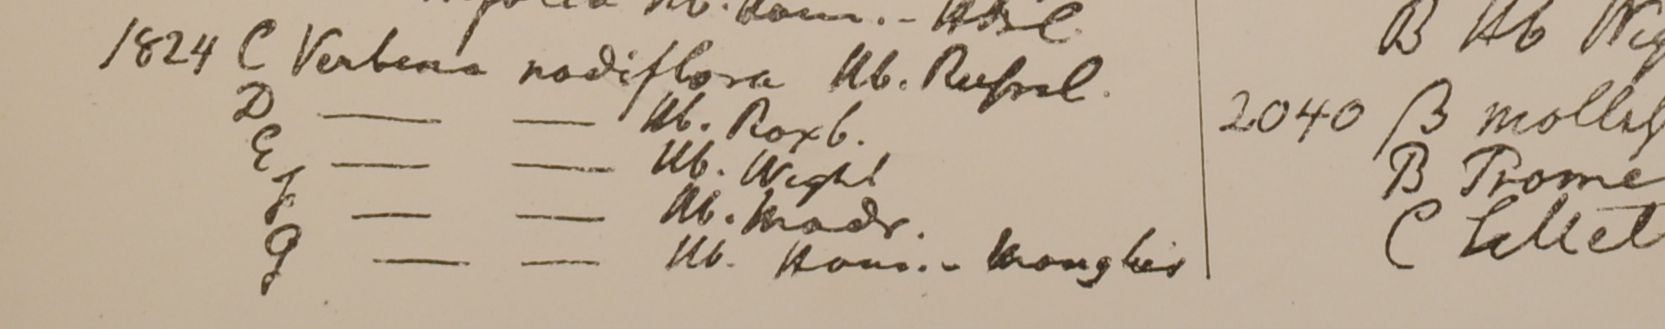 Hb. Ham. -
1824 C Verbena nodiflora Hb. Russel.
D — — Hb. Roxb.
E — — Hb. Wight
F — — Hb. Madr.
G — — Hb. Ham. - Monghir
B Hb Wig
2040 β
B Prome
C